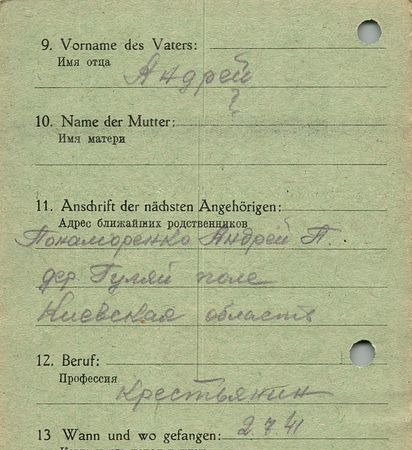 9. Vorname des Vaters:
Имя отца
Андрей
?
10. Name der Mutter:
Имя матери
11. Anschrift der nächsten Angehörigen:
Адрес ближайших родственников
Пономаренко Андрей П.
дер Гуляй поле
Киевская область
12. Beruf:
Профессия
крестьянин
13 Wann und wo gefangen: 2.7.41